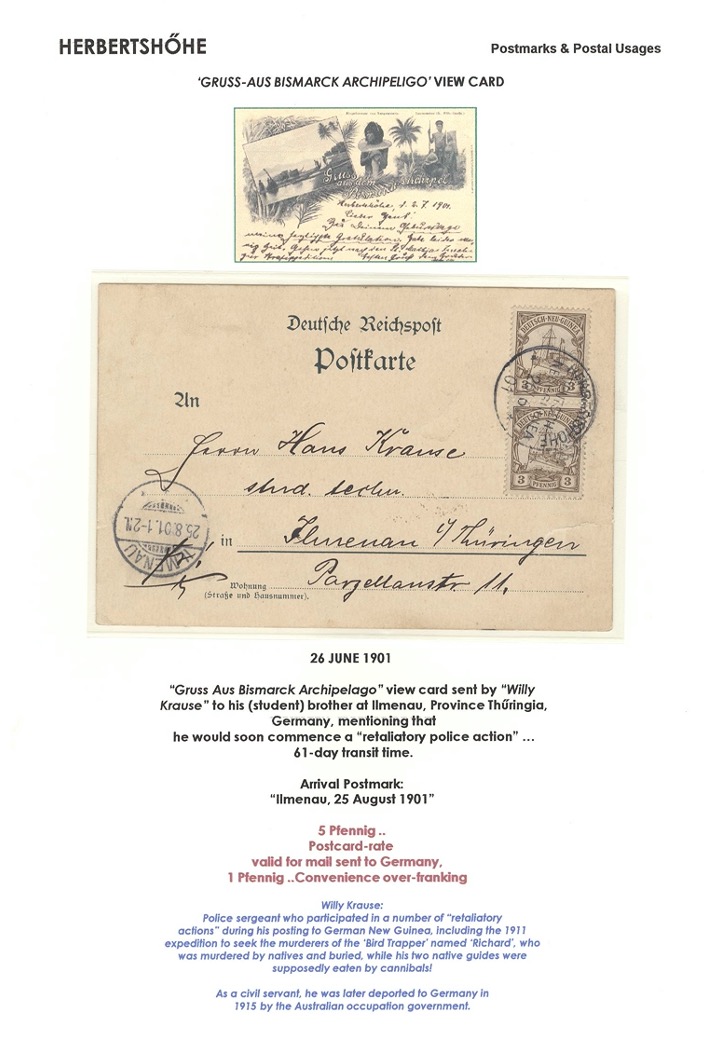 HERBERTSHŐHE
Postmarks & Postal Usages
‘GRUSS-AUS BISMARCK ARCHIPELIGO’ VIEW CARD
Gruss
aus dem
Bismarck-Archipel
Herbertshöhe, d. 2.7.1901.
Lieber Hans!
Zu Deinem Geburtstage
meine herzlichste Gratulation. Habe leider
Deutsche Reichspost
Postkarte
An
Herrn Hans Krause
stud. techn.
in Ilmenau i/Thüringen
Wohnung Porzellanstr 11.
(Straße und Hausnummer).
DEUTSCH-NEU-GUINEA
3 PFENNIG 3
DEUTSCH-NEU-GUINEA
3 PFENNIG 3
ILMENAU
25.8.01.1-2N.
26 JUNE 1901
“Gruss Aus Bismarck Archipelago” view card sent by “Willy
Krause” to his (student) brother at Ilmenau, Province Thűringia,
Germany, mentioning that
he would soon commence a “retaliatory police action” …
61-day transit time.
Arrival Postmark:
“Ilmenau, 25 August 1901”
5 Pfennig ..
Postcard-rate
valid for mail sent to Germany,
1 Pfennig ..Convenience over-franking
Willy Krause:
Police sergeant who participated in a number of “retaliatory
actions” during his posting to German New Guinea, including the 1911
expedition to seek the murderers of the ‘Bird Trapper’ named ‘Richard’, who
was murdered by natives and buried, while his two native guides were
supposedly eaten by cannibals!
As a civil servant, he was later deported to Germany in
1915 by the Australian occupation government.